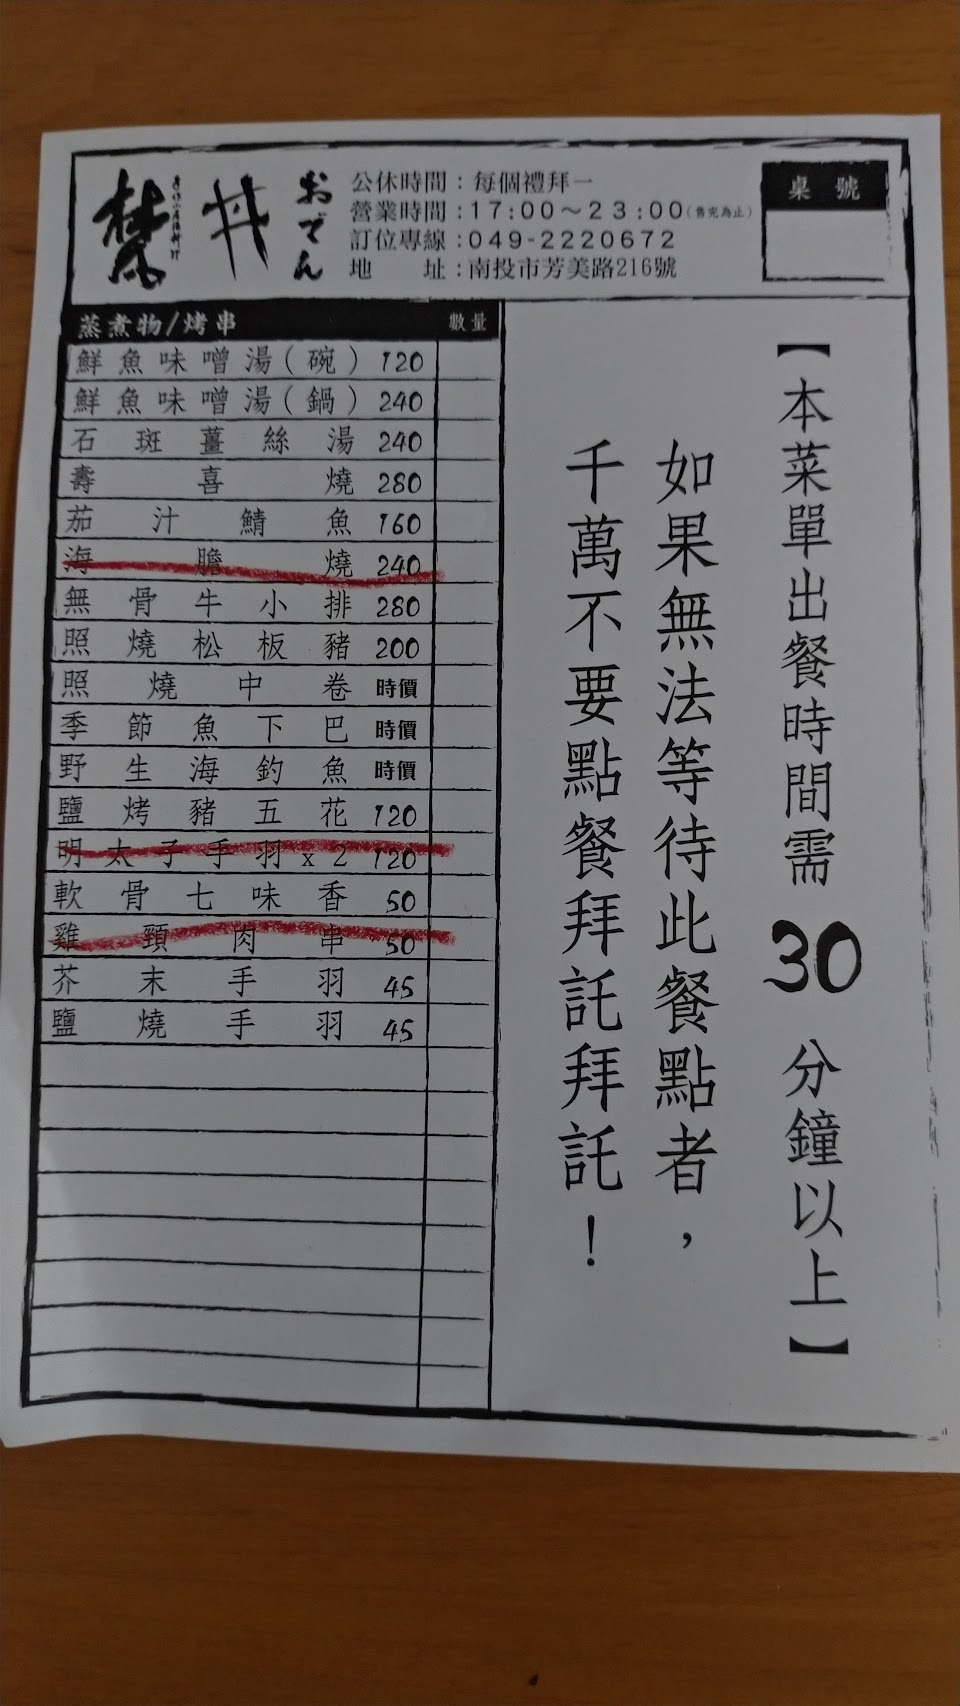 梵
井
おでん
公休時間：每個禮拜一
營業時間：17:00～23:00(售完為止)
訂位專線：049-2220672
地　　址：南投市芳美路216號
桌號
蒸煮物/烤串 數量
鮮魚味噌湯(碗) 120
鮮魚味噌湯(鍋) 240
石斑薑絲湯 240
壽喜燒 280
茄汁鯖魚 160
海膽燒 240
無骨牛小排 280
照燒松板豬 200
照燒中卷 時價
季節魚下巴 時價
野生海釣魚 時價
鹽烤豬五花 120
明太子手羽x2 120
軟骨七味香 50
雞頸肉串 50
芥末手羽 45
鹽燒手羽 45
【本菜單出餐時間需30分鐘以上】
如果無法等待此餐點者，
千萬不要點餐拜託拜託！